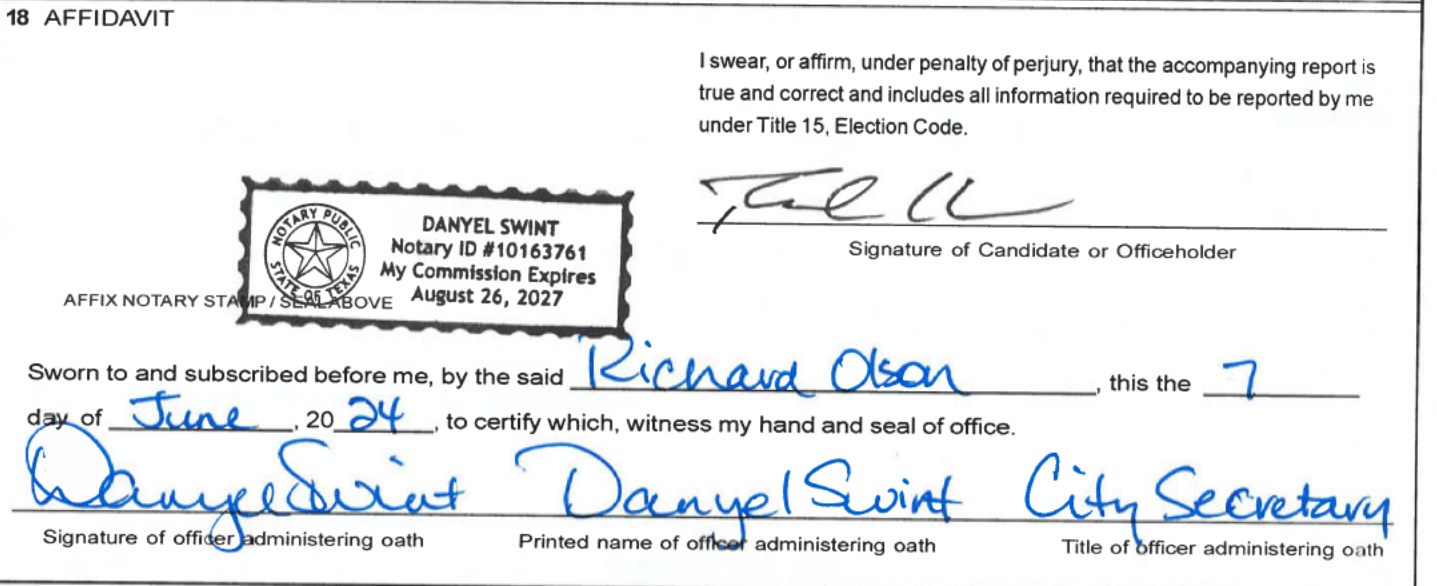 18 AFFIDAVIT
I swear, or affirm, under penalty of perjury, that the accompanying report is
true and correct and includes all information required to be reported by me
under Title 15, Election Code.
Signature of Candidate or Officeholder
NOTARY PUBLIC
STATE OF TEXAS
DANYEL SWINT
Notary ID #10163761
My Commission Expires
August 26, 2027
AFFIX NOTARY STAMP / SEAL ABOVE
Sworn to and subscribed before me, by the said Richard Olson, this the 7
day of June, 20 24, to certify which, witness my hand and seal of office.
Danyel Swint Danyel Swint City Secretary
Signature of officer administering oath Printed name of officer administering oath Title of officer administering oath